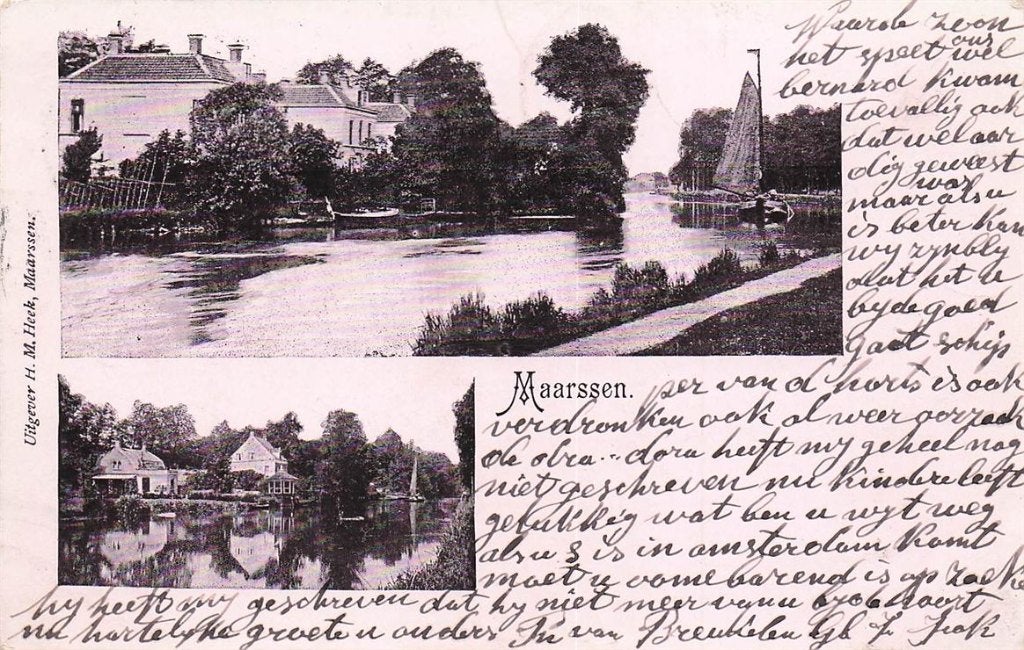 Waarde zoon
het speet ons wel
bernard kwam
toevallig ook
dat wel aar
dig geweest
maar als u
is beter kan
wy zyn bly
dat het u
by de goed
gaat schip
per van d horts is ook
verdronken ook al weer oorzaak
de dora heeft my geheel nog
niet geschreven nu kindere leeft
gelukkig wat ben u wyt weg
als u is in amsterdam komt
moet u oome barend is op zoeke
hy heeft my geschreven dat hy niet meer van u hoort
nu hartelyke groete u ouders van Breukelen
Maarssen.
Uitgever H. M. Heek, Maarssen.